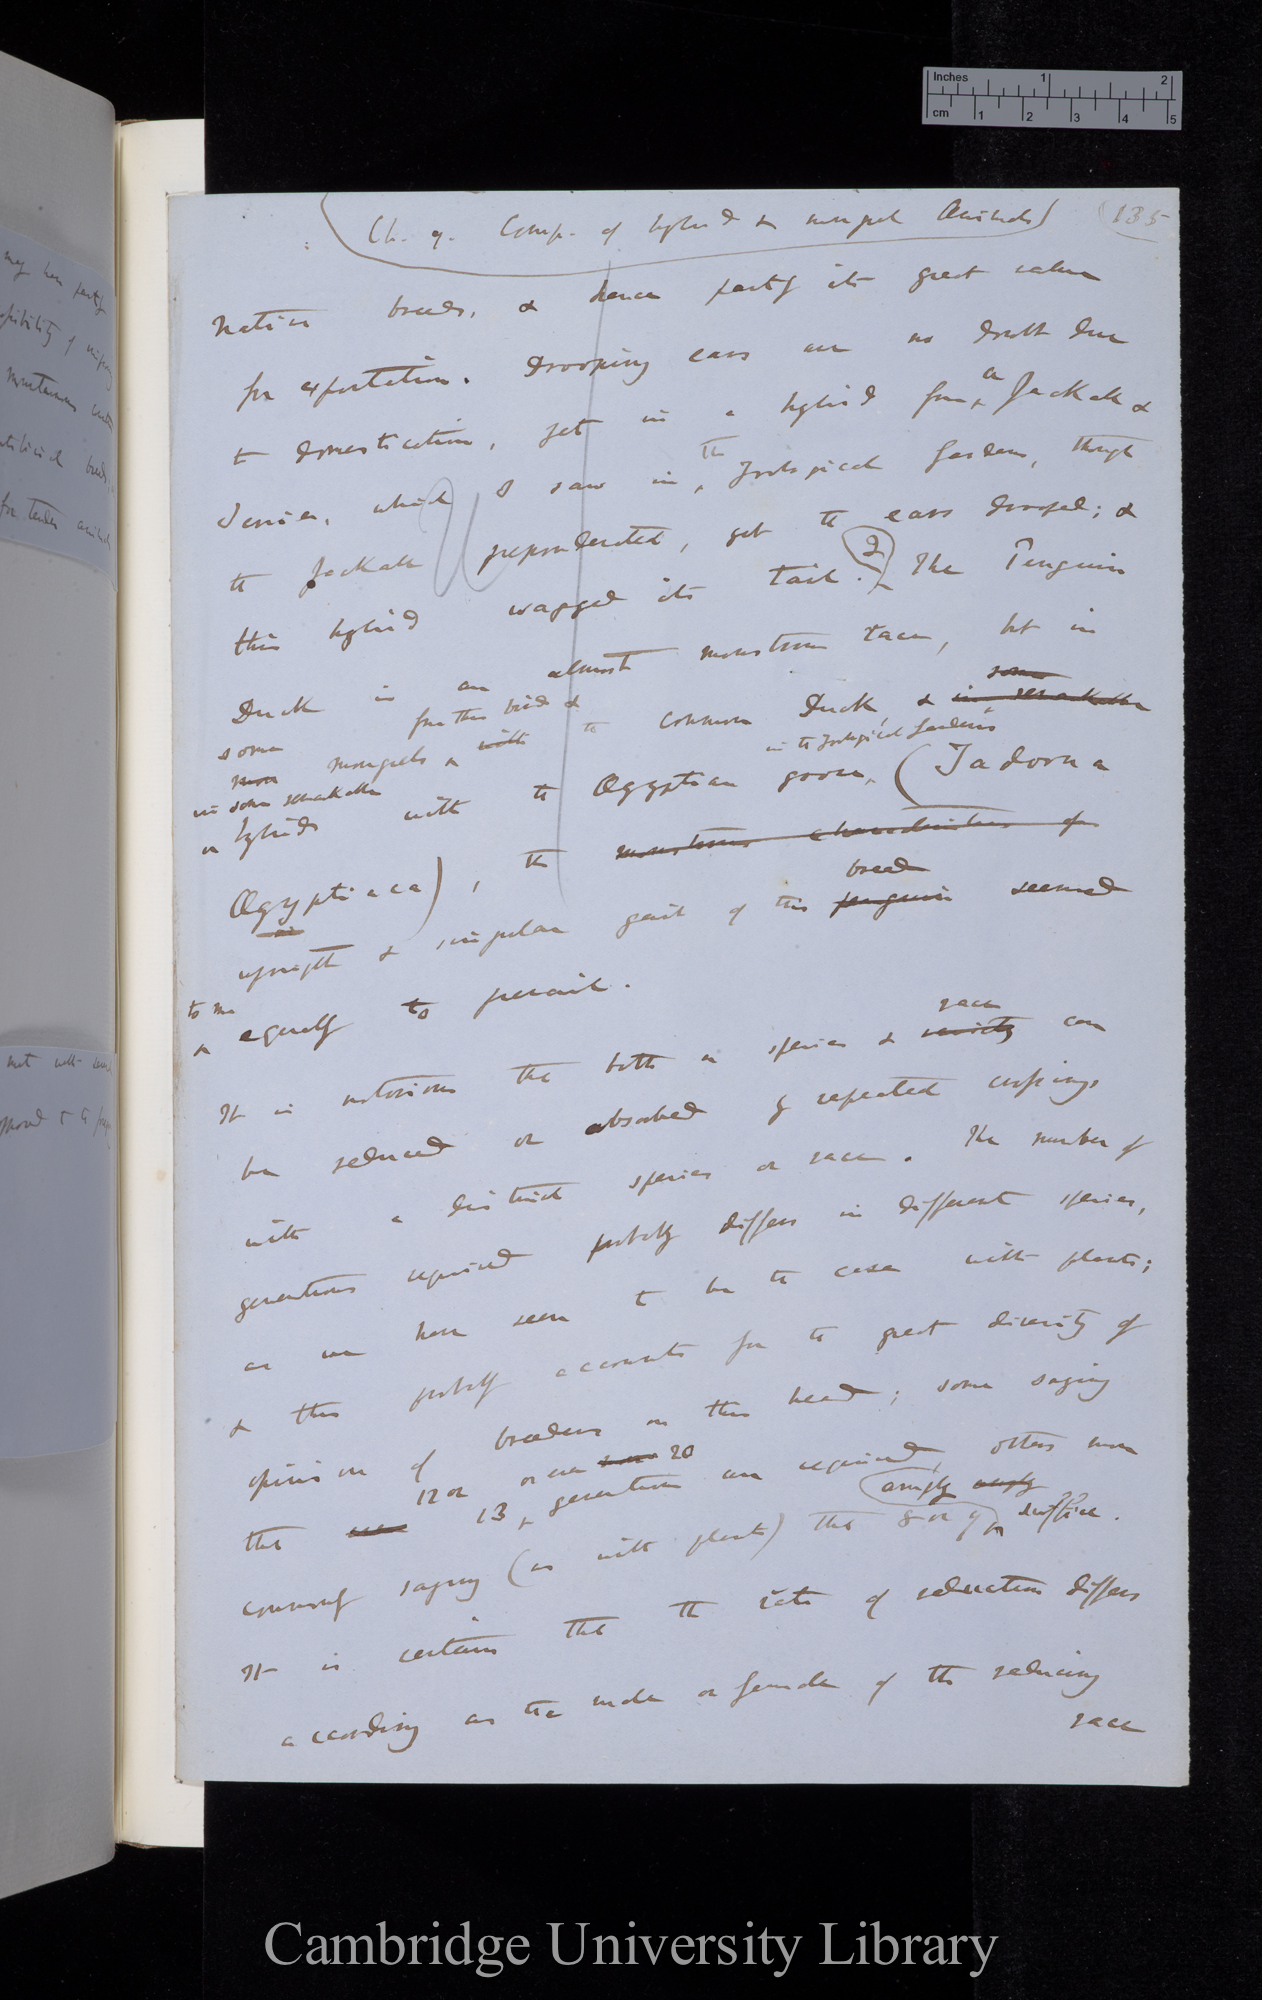 Inches 1 2
cm 1 2 3 4 5
Ch. 9. Comp. of hybrid & mongrel Animals (135
native breeds, & hence partly its great value
for exportation. Drooping ears are no doubt due
to domestication, yet in a hybrid from a Jackall &
Terrier, which I saw in the Zoological Gardens, though
the Jackall preponderated, yet the ears drooped; &
this hybrid wagged its tail. (2) The Penguin
Duck is an almost monstrous race, but in
some mongrels from this bird & with the common Duck, & in some remarkable
more
in some remarkable
or hybrids with the Ægyptian goose, in the Zoological Gardens (Tadorna
Ægyptiaca), the monstrous characteristics of
upright & singular gait of this penguin breed seemed
to me equally to prevail.
It is notorious that both a species & variety race can
be reduced or absorbed by repeated crossings
with a distinct species or race. The number of
generations required probably differs in different species,
as we have seen to be the case with plants;
& this probably accounts for the great diversity of
opinion of breeders on this head; some saying
that 12 or 13 or even 20 generations are required, others more
commonly saying (as with plants) that 8 or 9 amply suffice.
It is certain that the rate of reduction differs
according as the male or female of the reducing
race
Cambridge University Library